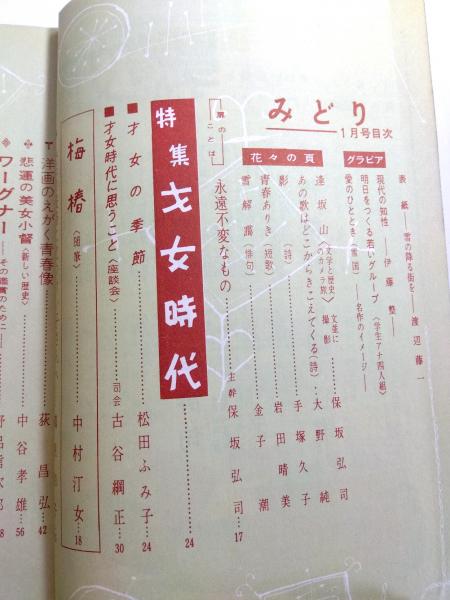 みどり
1月号目次
表紙――雪の降る街を――渡辺藤一
グラビア
現代の知性――伊藤整――
明日をつくる若いグループ〈学生アナ四人組〉
愛のひととき〈雪国〉――名作のイメージ――
花々の頁
逢坂山〈文学と歴史のカメラ旅〉文並に撮影 保坂弘司
あの歌はどこからきこえてくる(詩) 大野純
影(詩) 手塚久子
青春ありき(短歌) 岩田晴美
雪解靄(俳句) 金子潮
扉のことば
永遠不変なもの……主幹 保坂弘司…17
特集 才女時代……24
■才女の季節……松田ふみ子…24
■才女時代に思うこと〈座談会〉……司会 古谷綱正…30
梅椿〈随筆〉……中村汀女…18
洋画のえがく青春像……荻昌弘…42
悲運の美女小督〈新しい歴史〉……中谷孝雄…56
ワーグナー――その鑑賞のために――